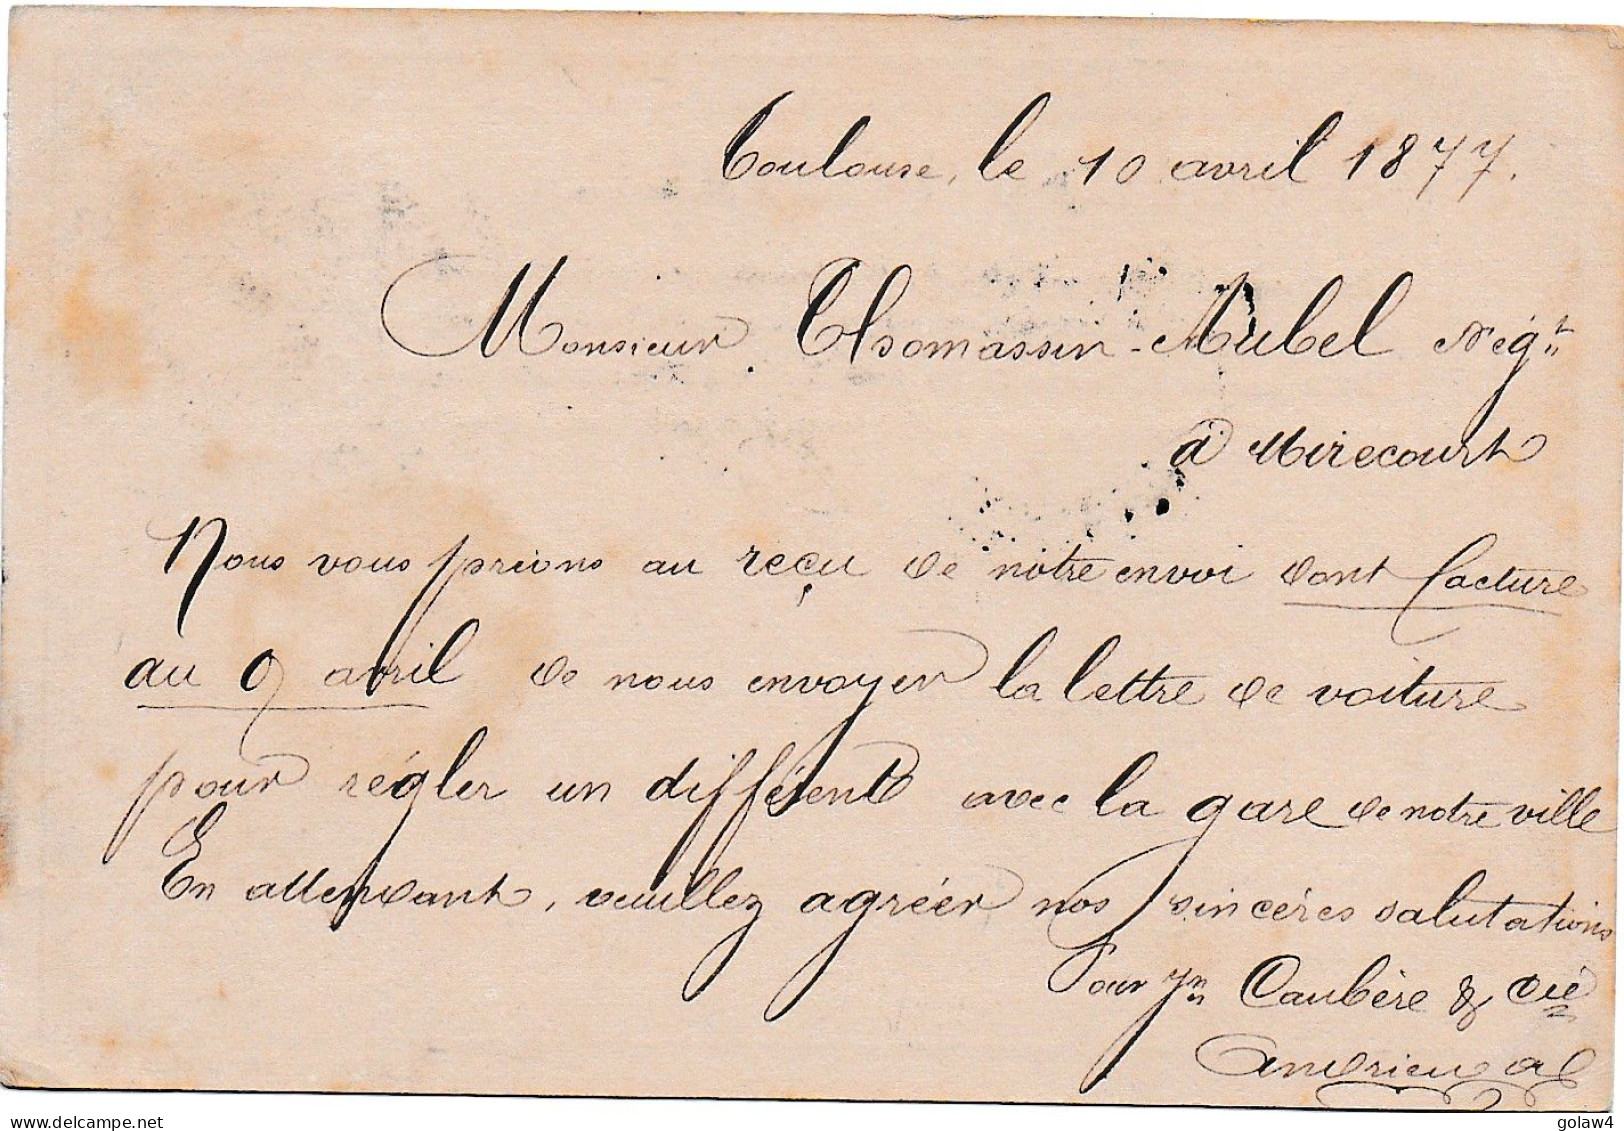 Toulouse, le 10 avril 1877.
Monsieur Thomassin-Aubel Négt
à Mirecourt
Nous vous prions au reçu de notre envoi dont facture
au 9 avril de nous envoyer la lettre de voiture
pour régler un différent avec la gare de notre ville
En attendant, veuillez agréer nos sincères salutations
Pour Jn Caubère & Cie
Andrieu
delcampe.net
golaw4